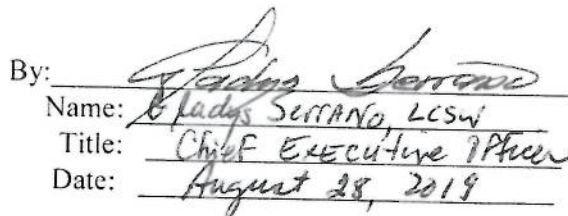 By: Gladys Serrano
Name: Gladys Serrano, LCSW
Title: Chief Executive Officer
Date: August 28, 2019